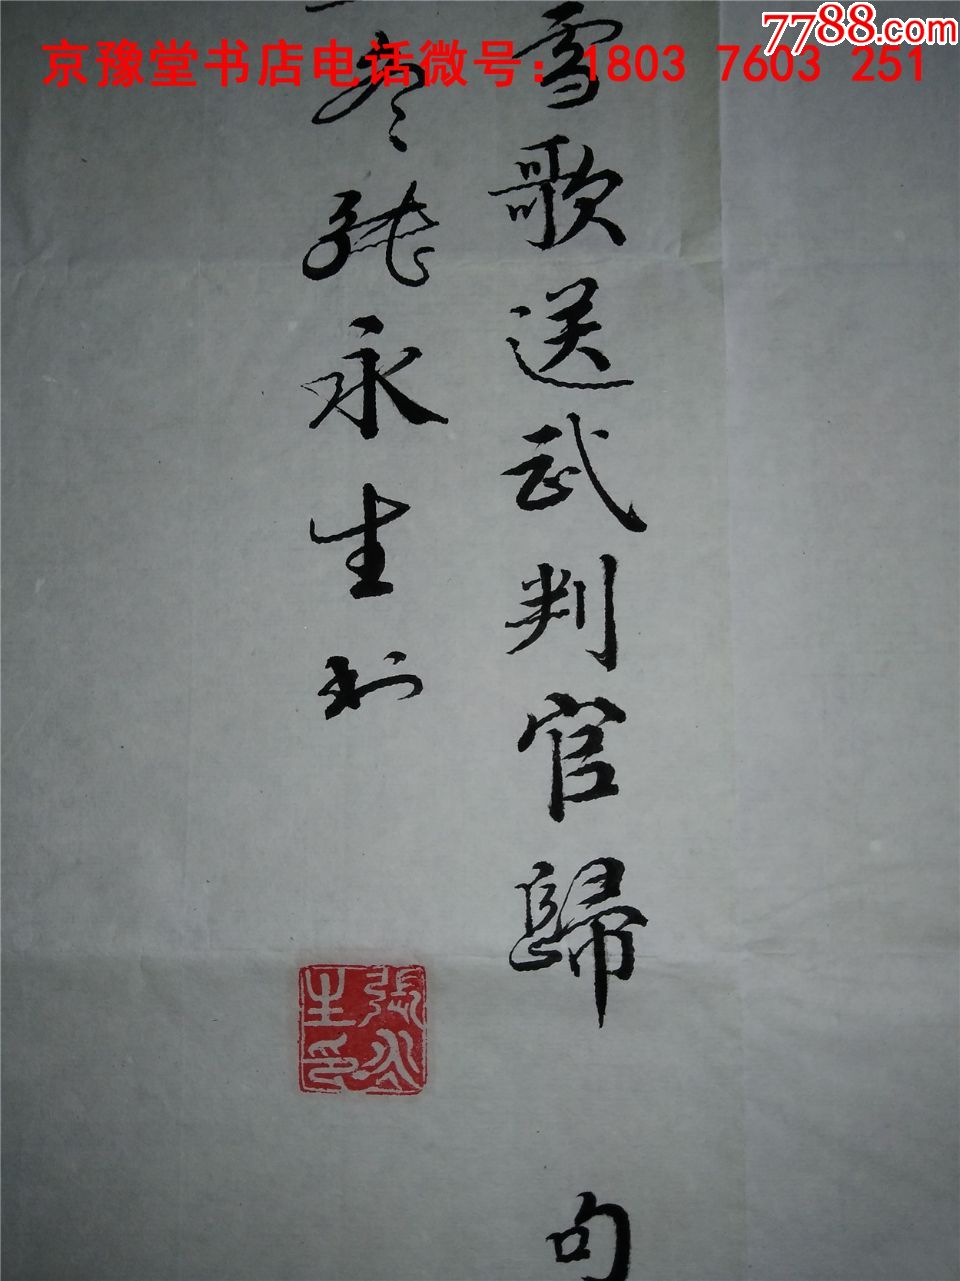 7788.com
京豫堂书店电话微号：1803 7603 251
雪歌送武判官歸 句
冬张永生书
張永生印